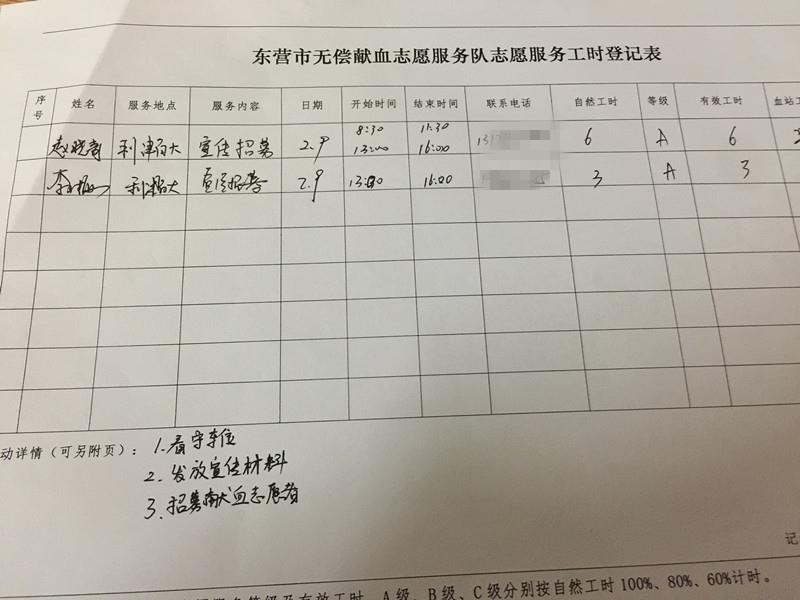 东营市无偿献血志愿服务队志愿服务工时登记表
序号 姓名 服务地点 服务内容 日期 开始时间 结束时间 联系电话 自然工时 等级 有效工时 血站工
8:30 11:30
利津百大 宣传招募 2.9 13:00 16:00 6 A 6
利津百大 宣传招募 2.9 13:00 16:00 3 A 3
动详情(可另附页): 1.看守车位
2.发放宣传材料
3.招募献血志愿者
记
服务等级及有效工时,A级、B级、C级分别按自然工时100%、80%、60%计时。